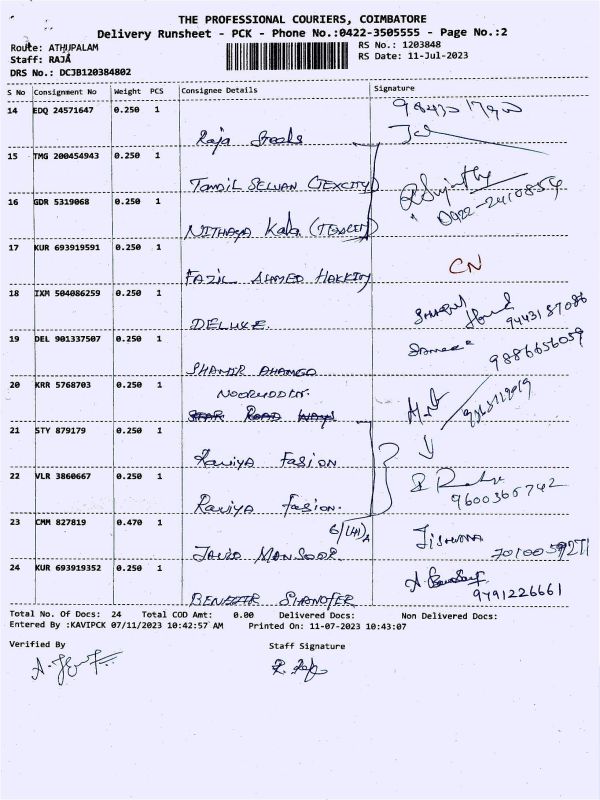 THE PROFESSIONAL COURIERS, COIMBATORE
Delivery Runsheet - PCK - Phone No.:0422-3505555 - Page No.:2
Route: ATHUPALAM
RS No.: 1203848
Staff: RAJA
RS Date: 11-Jul-2023
DRS No.: DCJB120384802
S No Consignment No Weight PCS Consignee Details Signature
14 EDQ 24571647 0.250 1
Raja Steels
15 TMG 200454943 0.250 1
TAMIL SELVAN (TEXCITY)
16 GDR 5319068 0.250 1
0422-2410854
NITHAYA Kala (TEXCITY)
17 KUR 693919591 0.250 1
CN
FAZIL AHMED HAKKIM
18 IXM 504086259 0.250 1
9443187086
DELUXE
19 DEL 901337507 0.250 1
9886656059
SHAMIR AHAMED
20 KRR 5768703 0.250 1
NOORUDDIN
STAR ROAD WAYS
21 STY 879179 0.250 1
Raniya Fasion
22 VLR 3860667 0.250 1
9600365742
Raniya Fasion.
23 CMM 827819 0.470 1
JAVID MANSOOR
24 KUR 693919352 0.250 1
9791226661
BENAZIR SHANOFER
Total No. Of Docs: 24 Total COD Amt: 0.00 Delivered Docs: Non Delivered Docs:
Entered By :KAVIPCK 07/11/2023 10:42:57 AM Printed On: 11-07-2023 10:43:07
Verified By Staff Signature